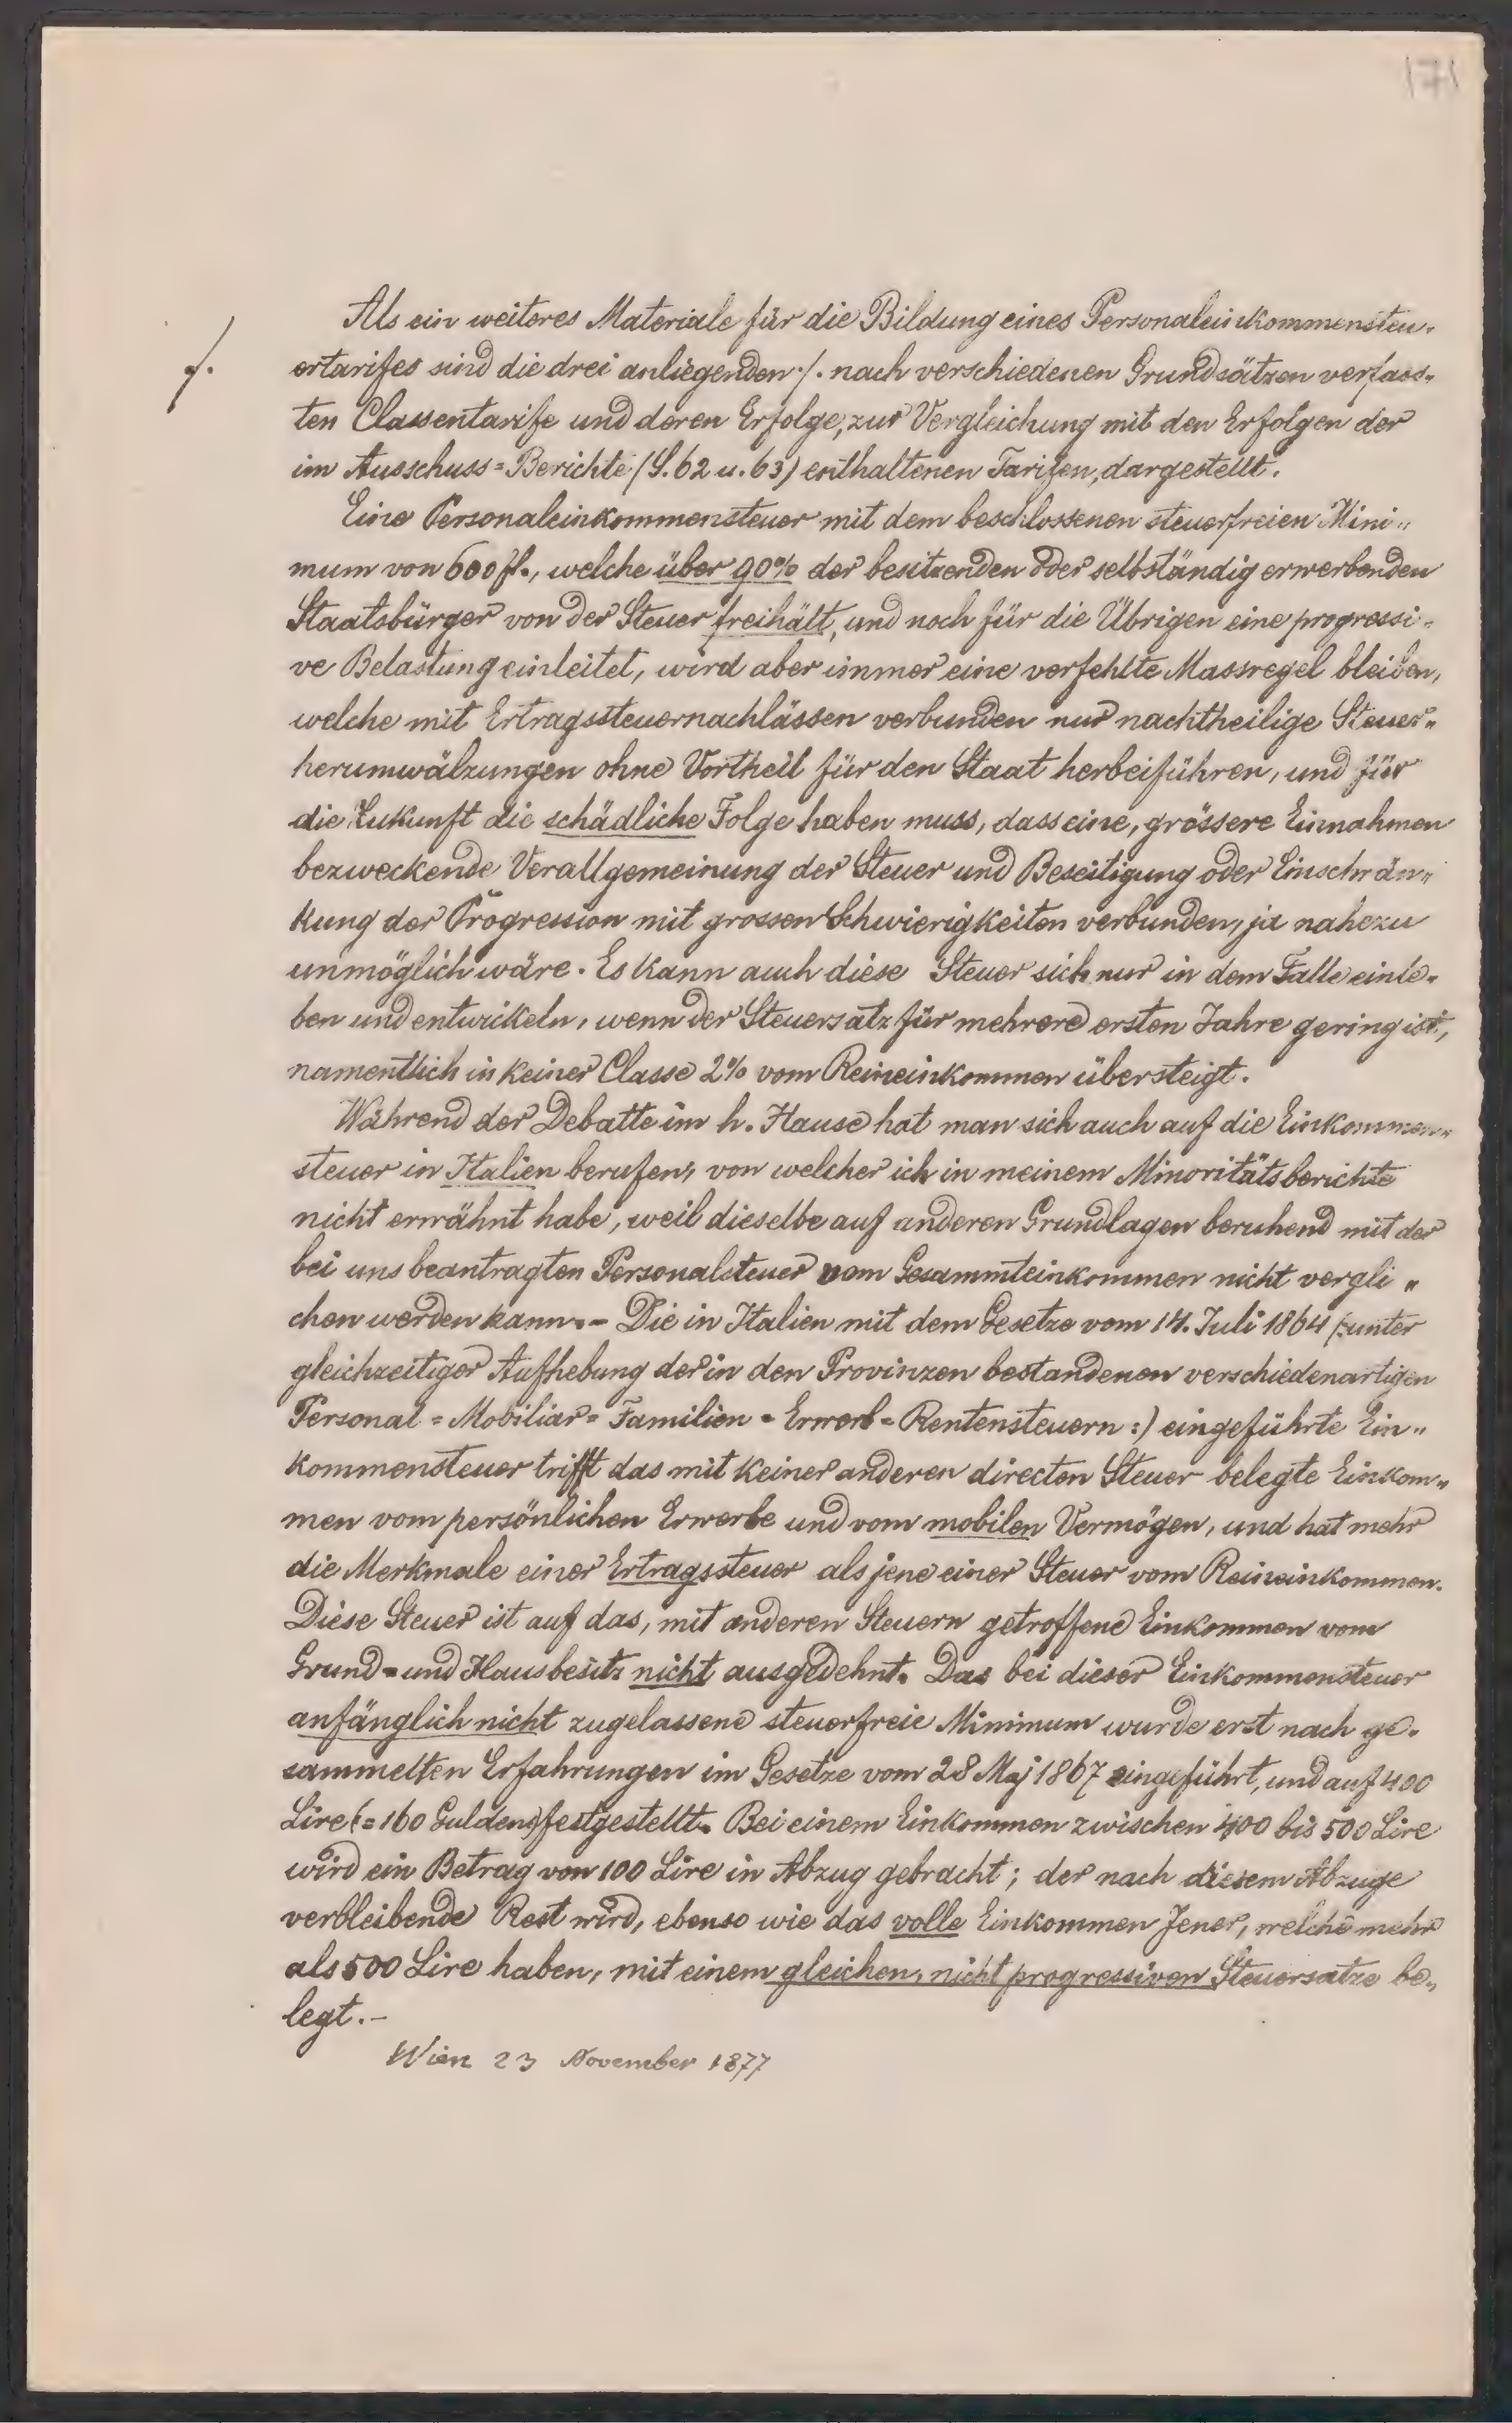 171
Als ein weiteres Materiale für die Bildung eines Personaleinkommensteu-
./.
ertarifes sind die drei anliegenden ./. nach verschiedenen Grundsätzen verfass-
ten Classentarife und deren Erfolge, zur Vergleichung mit den Erfolgen der
im Ausschuss=Berichte (S. 62 u. 63) enthaltenen Tarifen, dargestellt.
Eine Personaleinkommensteuer mit dem beschlossenen steuerfreien Mini„
mum von 600 fl., welche über 90% der besitzenden oder selbständig erwerbenden
Staatsbürger von der Steuer freihält, und noch für die Übrigen eine progressi-
ve Belastung einleitet, wird aber immer eine verfehlte Massregel bleiben,
welche mit Ertragssteuernachlässen verbunden nur nachtheilige Steuer„
herumwälzungen ohne Vortheil für den Staat herbeiführen, und für
die Zukunft die schädliche Folge haben muss, dass eine, grössere Einnahmen
bezweckende Verallgemeinung der Steuer und Beseitigung oder Einschrän„
kung der Progression mit grossen Schwierigkeiten verbunden, ja nahezu
unmöglich wäre. Es kann auch diese Steuer sich nur in dem Falle einle-
ben und entwickeln, wenn der Steuersatz für mehrere ersten Jahre gering ist,
namentlich in keiner Classe 2% vom Reineinkommen übersteigt.
Während der Debatte im h. Hause hat man sich auch auf die Einkommen„
steuer in Italien berufen, von welcher ich in meinem Minoritätsberichte
nicht erwähnt habe, weil dieselbe auf anderen Grundlagen beruhend mit der
bei uns beantragten Personalsteuer vom Gesammteinkommen nicht vergli„
chen werden kann. – Die in Italien mit dem Gesetze vom 14. Juli 1864 (:unter
gleichzeitiger Aufhebung der in den Provinzen bestandenen verschiedenartigen
Personal=Mobiliar=Familien=Erwerb=Rentensteuern:) eingeführte Ein„
kommensteuer trifft das mit keiner anderen directen Steuer belegte Einkom„
men vom persönlichen Erwerbe und vom mobilen Vermögen, und hat mehr
die Merkmale einer Ertragssteuer als jene einer Steuer vom Reineinkommen.
Diese Steuer ist auf das, mit anderen Steuern getroffene Einkommen vom
Grund=und Hausbesitz nicht ausgedehnt. Das bei dieser Einkommensteuer
anfänglich nicht zugelassene steuerfreie Minimum wurde erst nach ge-
sammelten Erfahrungen im Gesetze vom 28 Maj 1867 eingeführt, und auf 400
Lire (=160 Gulden) festgestellt. Bei einem Einkommen zwischen 400 bis 500 Lire
wird ein Betrag von 100 Lire in Abzug gebracht; der nach diesem Abzuge
verbleibende Rest wird, ebenso wie das volle Einkommen Jener, welche mehr
als 500 Lire haben, mit einem gleichen, nicht progressiven Steuersatze be„
legt. –
Wien 23 November 1877